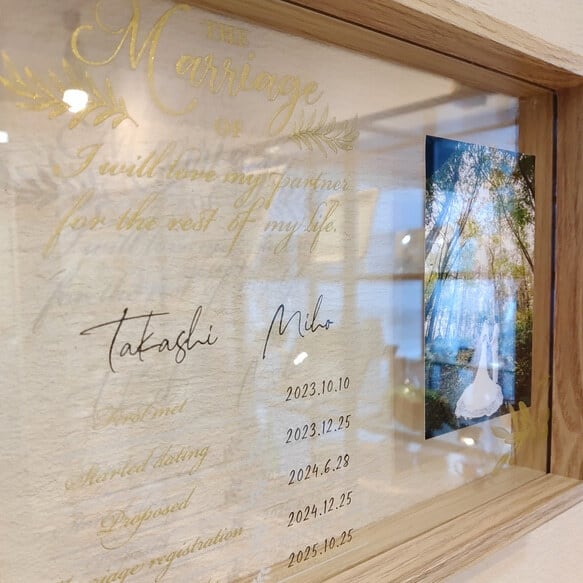 THE
Marriage
OF
I will love my partner
for the rest of my life.
Takashi Miho
First met 2023.10.10
Started dating 2023.12.25
Proposed 2024.6.28
Marriage registration 2024.12.25
2025.10.25